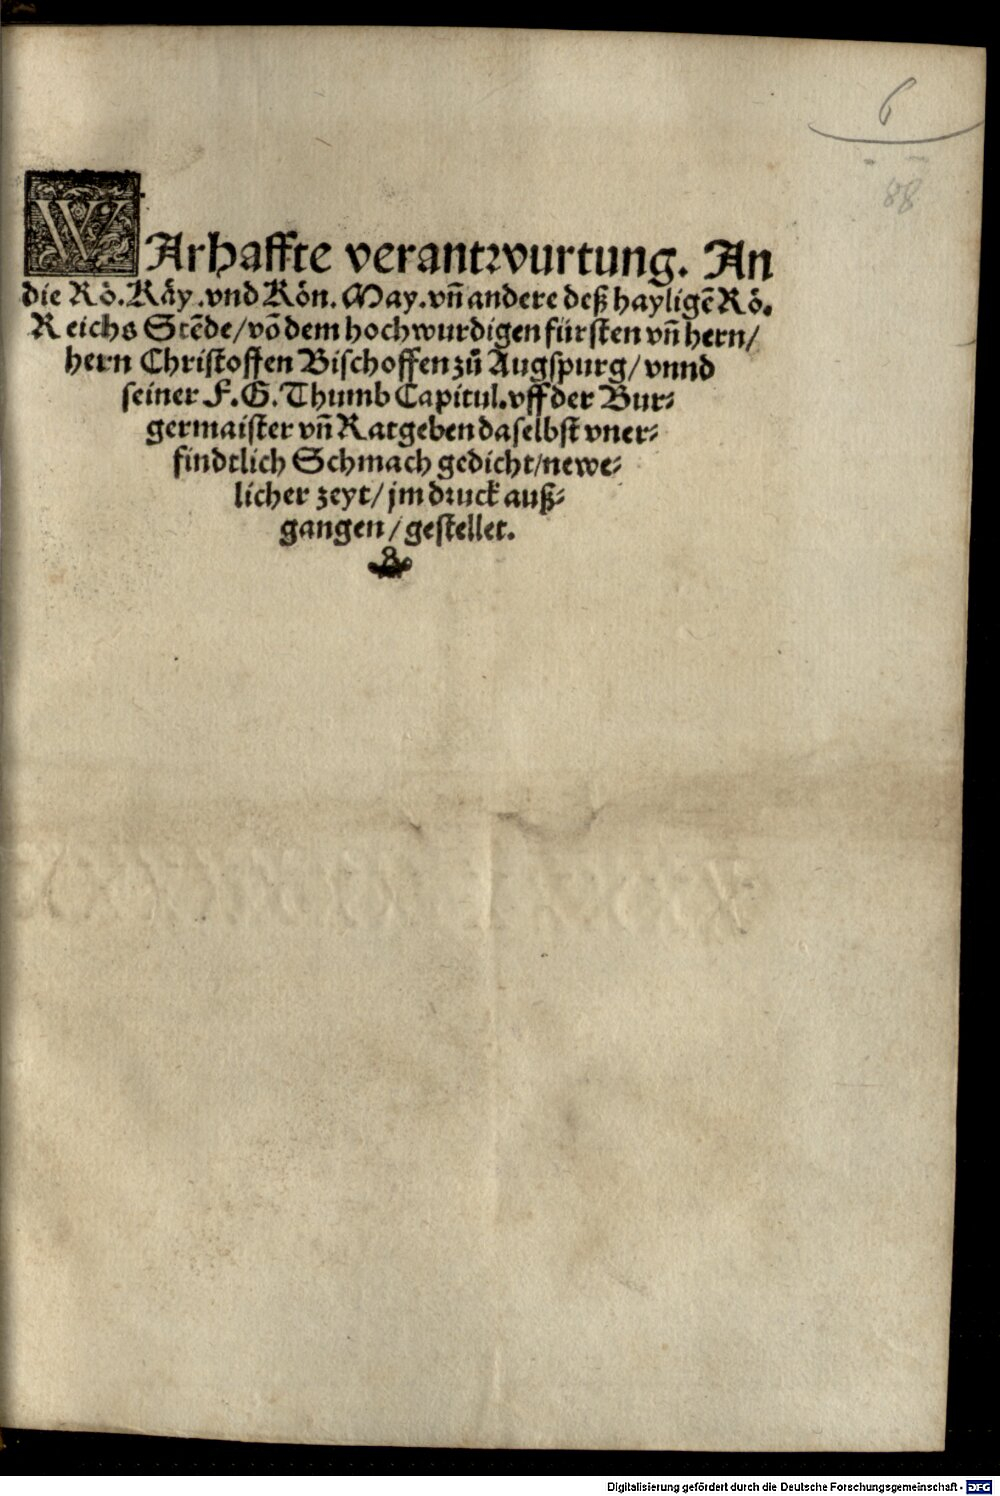 6
88
WArhaffte verantwurtung. An
die Rö. Käy. vnd Kön. May. vñ andere deß hayligẽ Rö.
Reichs Stẽde/ võ dem hochwurdigen fürsten vñ hern/
hern Christoffen Bischoffen zů Augspurg/ vnnd
seiner F. G. Thumb Capitul. vff der Bur⸗
germaister vñ Ratgeben daselbst vner⸗
findtlich Schmach gedicht/ newe⸗
licher zeyt/ jm druck auß⸗
gangen/ gestellet.
Digitalisierung gefördert durch die Deutsche Forschungsgemeinschaft - DFG